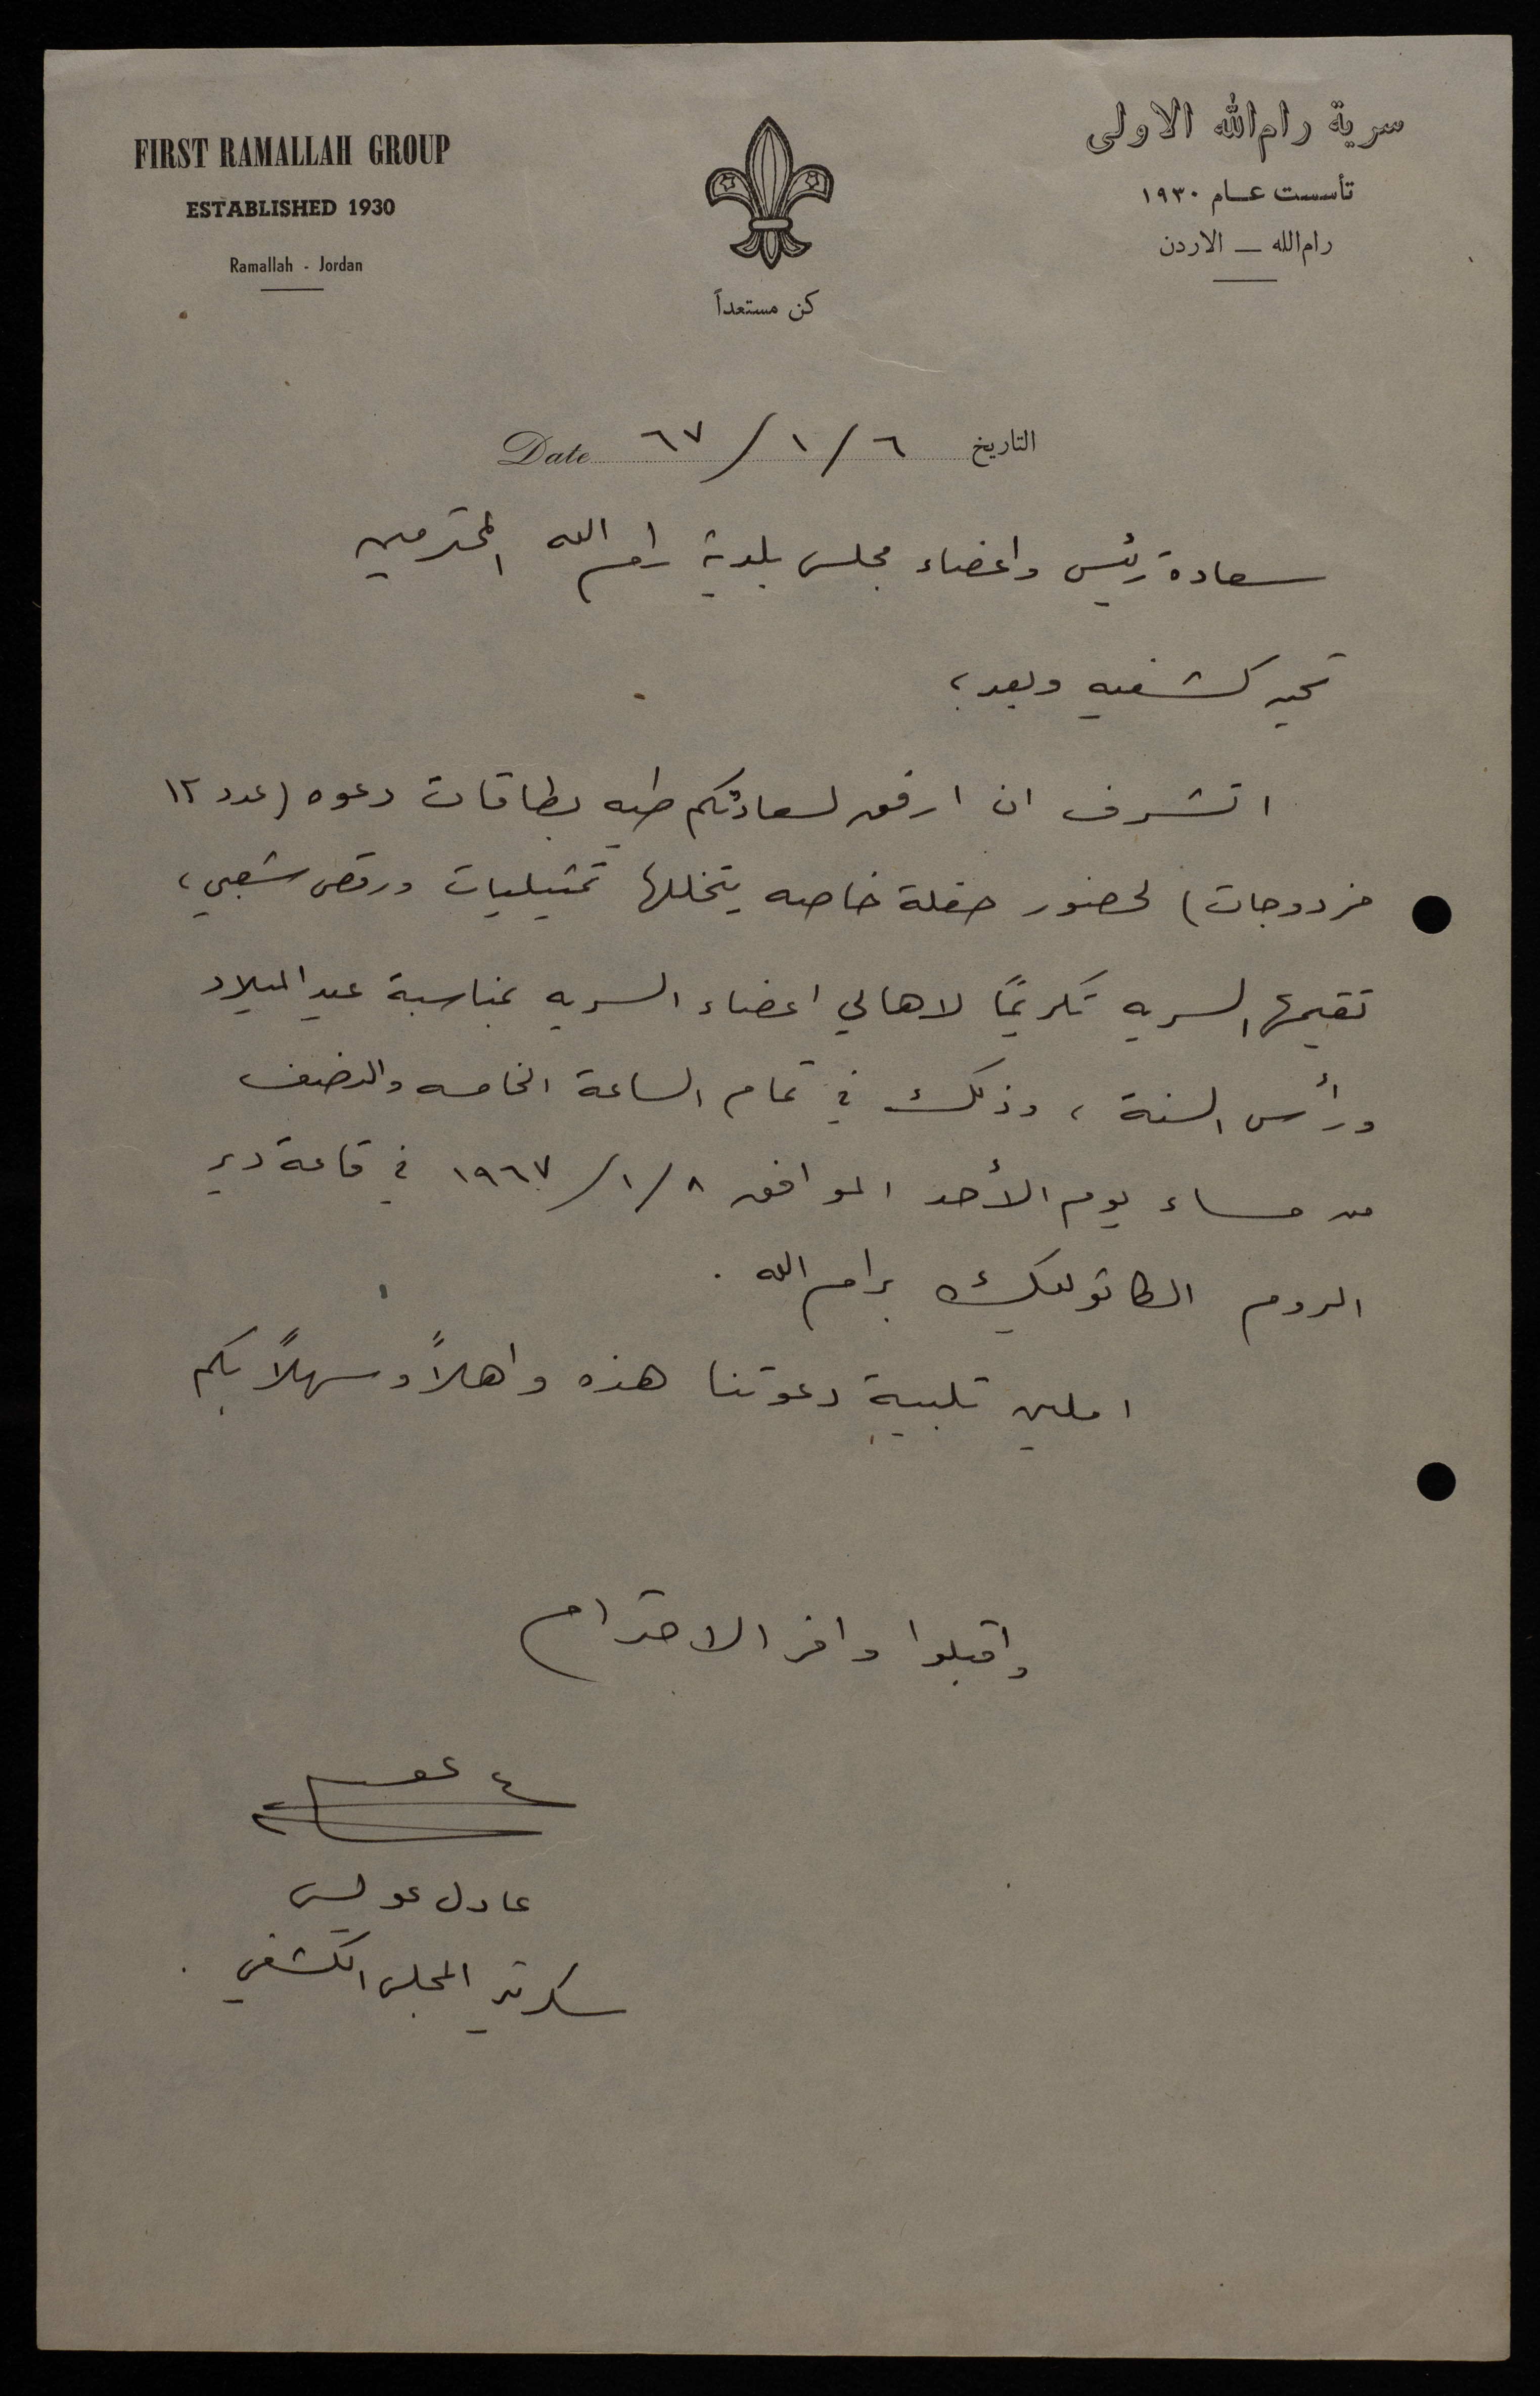 FIRST RAMALLAH GROUP
ESTABLISHED 1930
Ramallah - Jordan
سرية رام الله الاولى
تأسست عام ١٩٣٠
رام الله — الاردن
كن مستعداً
التاريخ ٦ / ١ / ٦٧ Date
سعادة رئيس واعضاء مجلس بلدية رام الله المحترمين
تحيه كشفيه وبعد ،
اتشرف ان ارفق لسعادتكم طيه بطاقات دعوه (عدد ١٢
مزدوجات) لحضور حفلة خاصه يتخللها تمثيليات ورقص شعبي ،
تقيمها السريه تكريمًا لاهالي اعضاء السريه بمناسبة عيد الميلاد
ورأس السنة ، وذلك في تمام الساعة الخامسه والنصف
من مساء يوم الأحد الموافق ٨ / ١ / ١٩٦٧ في قاعة دير
الروم الكاثوليك برام الله .
املين تلبية دعوتنا هذه واهلاً وسهلاً بكم
واقبلوا وافر الاحترام
عادل عويس
سكرتير المجلس الكشفي .